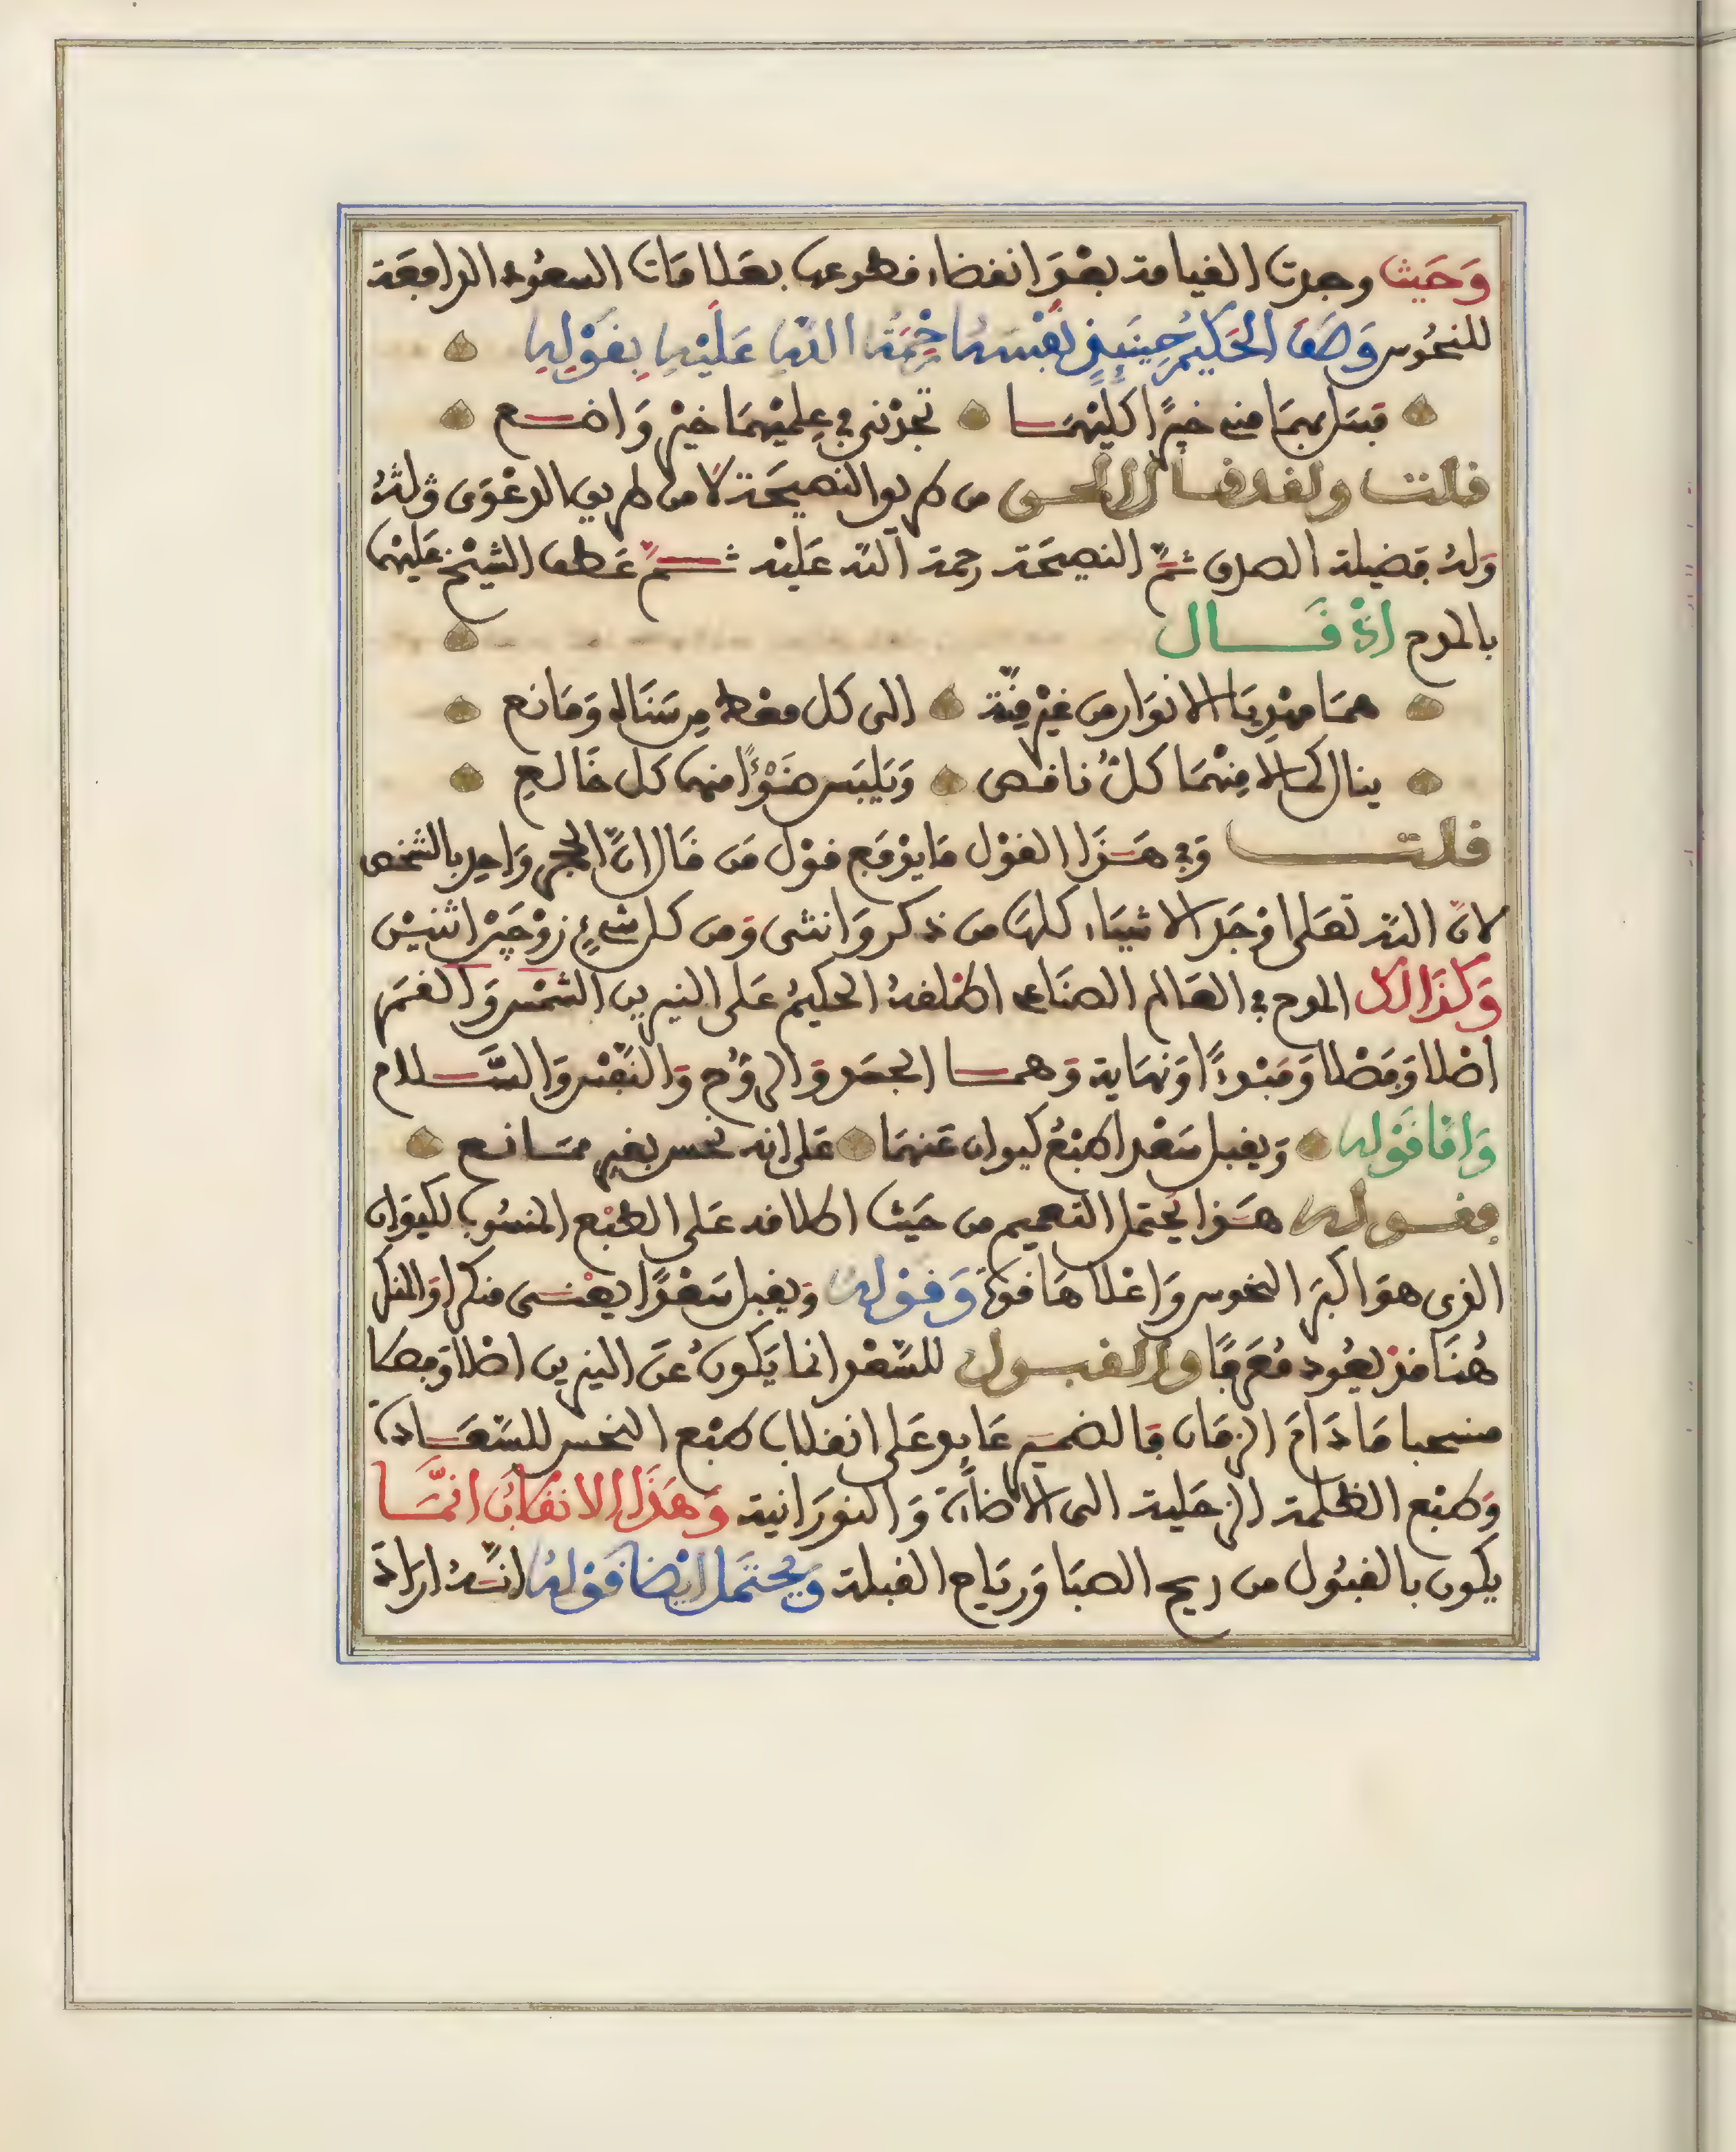 وَحَيث وجدت القيامة بعْدَ انقضاء قطوعها بعَلامَات السعُود الرافعَة
للنحُوس وَصَفَ الحَكيم حِينَئِذٍ نَفْسَهُ رَحْمَةُ اللهِ عَلَيْهِ بِقَوْلِهِ
فسَل بهمَا منى خبيرًا كليْهمَا تجدْني في عِلميْهمَا خيْر وَاضع
قلت ولقد قال الحق من طريق النصيحَة لا من طريق الدعْوَى ولهُ
وَلهُ فضيلة الصدق ثمّ النصيحَة رحمة الله عليْه ثمّ عَطف الشيْخ عليْهمَا
بالمدح اذْ قَال
همَا مهْدِيَا الانوَار من غيْر مِنّة الى كل معْط مِن سَنَاه وَمَانع
ينال كمالا مِنْهمَا كلُّ ناقص وَيَلبَس ضَوْءًا منهما كل خَالع
قلت وَفي هَذا القوْل مَا يرْفع قوْل مَن قَال انَّ الحجر وَاحد بالشخص
لانّ الله تعَلى اوْجَد الاشيَاء كلهَا من ذكر وَانثى وَمن كل شيْءٍ زوْجَيْن اثنيْن
وَكذَالك المدح في العَالم الصنَاعي اطْلقهُ الحكيمُ عَلى النيرين الشمْس وَالقمَر
اصْلا وَفصْلا وَمَبْدءًا وَنهَاية وَهمَا الجسَد وَالرُّوُح وَالنَّفْس وَالسَّلام
وَامَّا قَوْله وَيقبل سَعْدا طبْعُ كيوان عَنهمَا عَلى انه نحس بغير ممَانع
فقوله هَذا يحتمَل التعميم من حَيث اطلاقه عَلى الطبْع المنسُوب لكيوَان
الذى هوَ اكبَر النحوس وَاعْلاهَا قوة وَقوْله وَيقبل سَعْدًا يعْنى منكرا وَالمنكر
هُنَا قدْ يعُود مُعَرفًا والقبول للسَّعْد انما يَكونُ عَن النيرين اصْلا وَفصلا
منسحبا مَا دَامَ الزمَان فالضمير عَايد عَلى انقلاب طبْع النحس للسَّعَادة
وَطبْع الظلمة الزحَلية الى الاضَاءة وَالنورَانية وَهَذَا الانقلابُ انمَّا
يكون بالقبُول من ريح الصبَا وَريَاح القبلة وَيُحتمَل ايْضا قَوْلهُ انّهُ ارَادَ